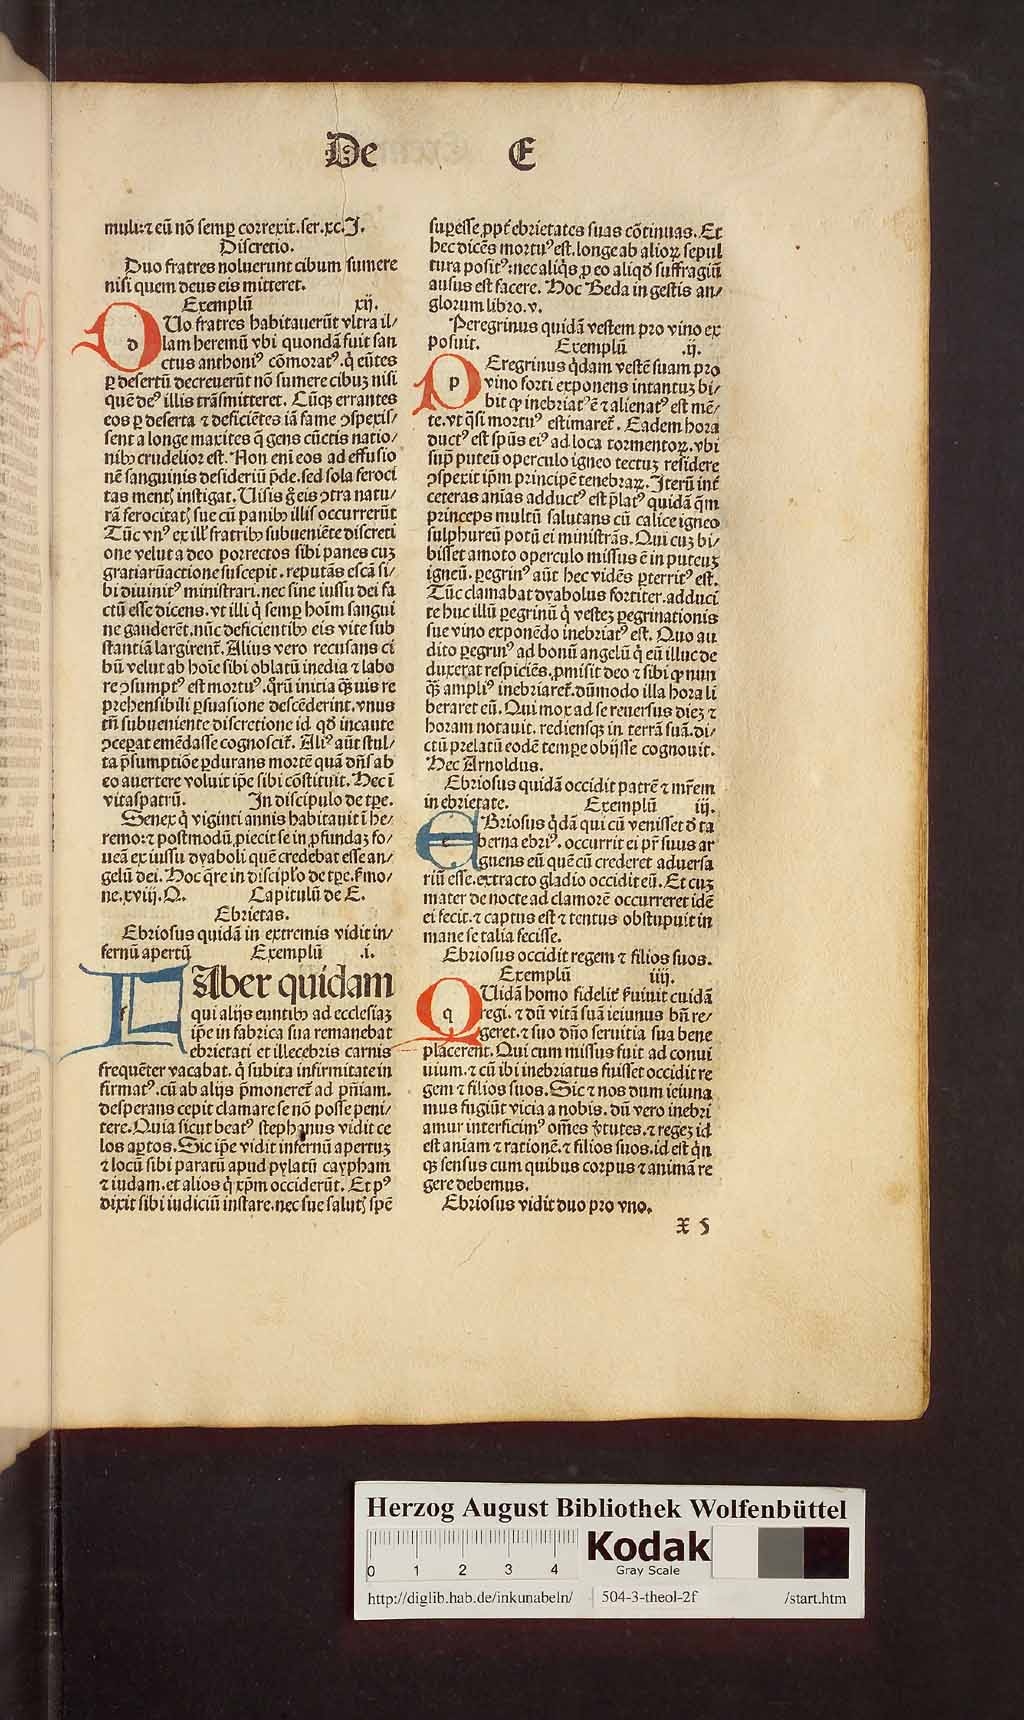 De E
mulı:ꝛ eū nõ semꝑ correxit.ser.xc.J.
Discretio.
Duo fratres noluerunt cibum sumere
nisi quem deus eis mitteret.
Exemplū xij.
DUo fratres habitauerūt vltra il⸗
lam heremū vbi quondā fuit san
ctus anthoniꝰ cōmoratꝰ.q̇ eūtes
ꝑ desertū decreuerūt nō sumere cibuꝫ nisi
quē deꝰ illis trāsmitteret. Cūqꝫ errantes
eos ꝑ deserta ꝛ deficiētes iā fame ꝯspexis⸗
sent a longe maxites q̄ gens cūctis natio⸗
nibꝫ crudelior est. Non enī eos ad effusio
nē sanguinis desideriū p̄de.sed sola feroci
tas mentꝭ instigat. Uisis g̊ eis ꝯtra natu⸗
rā ferocitatꝭ sue cū panibꝫ illis occurrerūt
Tūc vnꝰ ex ill' fratribꝫ subueniēte discreti
one velut a deo porrectos sibi panes cuꝫ
gratiarūactione suscepit. reputās escā si⸗
bi diuinitꝰ ministrari. nec sine iussu dei fa
ctū esse dicens. vt illi q̇ semꝑ hoīm sangui
ne gauderēt.nūc deficientibꝫ eis vite sub
stantiā largirent. Alius vero recusans ci
bū velut ab hoīe sibi oblatū inedia ꝛ labo
re ꝯsumptꝰ est mortuꝰ.q̊rū inicia q̄uis re
prehensibili ꝑsuasione descēderint.vnus
tn̄ subueniente discretione id qđ incaute
ꝯceꝑat emēdasse cognoscit̄. Aliꝰ aūt stul⸗
ta p̄sumptiōe ꝑdurans mortē quā dn̄s ab
eo auertere voluit ip̄e sibi cōstituit. Hec ī
vitaspatrū. In discipulo de tꝑe.
Senex q̇ viginti annis habitauit ī he⸗
remo:ꝛ postmodū ꝓiecit se in ꝓfundaꝫ fo⸗
ueā ex iussu dyaboli quē credebat esse an⸗
gelū dei. Hoc q̄re in discip̄lo de tꝑe. ẜmo⸗
ne.xviij.Q. Capitulū de E.
Ebrietas.
Ebriosus quidā in extremis vidit in⸗
fernū apertū Exemplū .i.
fAber quidam
qui alijs euntibꝫ ad ecclesiaꝫ
ip̄e in fabrica sua remanebat
ebrietati et illecebris carnis
frequēter vacabat. q̇ subita infirmitate in
firmatꝰ. cū ab alijs p̄moneret̄ ad pn̄iam.
desperans cepit clamare se nō posse peni⸗
tere. Quia sicut beatꝰ stephanus vidit ce
los aꝑtos. Sic ip̄e vidit infernū apertuꝫ
ꝛ locū sibi paratū apud pylatū caypham
ꝛ iudam.et alios q̇ xp̄m occiderūt. Et pꝰ
dixit sibi iudiciū instare.nec sue salutꝭ spē
suꝑesse ꝓpt̄ ebrietates suas cōtinuas. Et
hec dicēs mortuꝰ est.longe ab alioꝝ sepul
tura positꝰ:nec aliq̇s ꝓ eo aliqđ suffragiū
ausus est facere. Hoc Beda in gestis an⸗
glorum libro.v.
Peregrinus quidā vestem pro vino ex
posuit. Exemplū .ij.
PEregrinus q̇dam vestē suam pro
vino forti exponens intantuꝫ bi⸗
bit ꝙ inebriatꝰ ē ꝛ alienatꝰ est mē⸗
te.vt q̄si mortuꝰ estimaret̄. Eadem hora
ductꝰ est spūs eiꝰ ad loca tormentoꝝ.vbi
sup̄ puteū operculo igneo tectuꝫ residere
ꝯspexit ip̄m principē tenebraꝝ. Iterū int̄
ceteras aīas adductꝰ est p̄latꝰ quidā q̄m
princeps multū salutans cū calice igneo
sulphureū potū ei ministrās. Qui cuꝫ bi⸗
bisset amoto operculo missus ē in puteuꝫ
igneū. ꝑegrinꝰ aūt hec vidēs ꝑterritꝰ est.
Tūc clamabat dyabolus fortiter.adduci
te huc illū ꝑegrinū q̇ vesteꝫ ꝑegrinationis
sue vino exponēdo inebriatꝰ est. Quo au
dito ꝑegrinꝰ ad bonū angelū q̇ eū illuc de
duxerat respiciēs.ꝓmisit deo ꝛ sibi ꝙ nun
q̄ꝫ ampliꝰ inebriaret̄.dūmodo illa hora li
beraret eū. Qui mox ad se reuersus dieꝫ ꝛ
horam notauit. rediensqꝫ in terrā suā. di⸗
ctū prelatū eodē tempore obijsse cognouit.
Hec Arnoldus.
Ebriosus quidā occidit patrē ꝛ mr̄em
in ebrietate. Exemplū iij.
EBriosus q̇dā qui cū venisset đ ta
berna ebriꝰ. occurrit ei pr̄ suus ar
guens eū quē cū crederet aduersa
riū esse.extracto gladio occidit eū. Et cuꝫ
mater de nocte ad clamorē occurreret idē
ei fecit.ꝛ captus est ꝛ tentus obstupuit in
mane se talia fecisse.
Ebriosus occidit regem ꝛ filios suos.
Exemplū iiij.
QUidā homo fidelit̄ ẜuiuit cuidā
regi. ꝛ dū vitā suā ieiunus bn̄ re⸗
geret. ꝛ suo dn̄o seruitia sua bene
placerent. Qui cum missus fuit ad conui
uium.ꝛ cū ibi inebriatus fuisset occidit re
gem ꝛ filios suos. Sic ꝛ nos dum ieiuna
mus fugiūt vicia a nobis. dū vero inebri
amur interficimꝰ om̄es v̄tutes.ꝛ regeꝫ id
est aīam ꝛ rationē.ꝛ filios suos.id est q̇n
qꝫ sensus cum quibus corpus ꝛ animā re
gere debemus.
Ebriosus vidit duo pro vno.
x 5
Herzog August Bibliothek Wolfenbüttel
0 1 2 3 4
Kodak
Gray Scale
http://diglib.hab.de/inkunabeln/ 504-3-theol-2f /start.htm